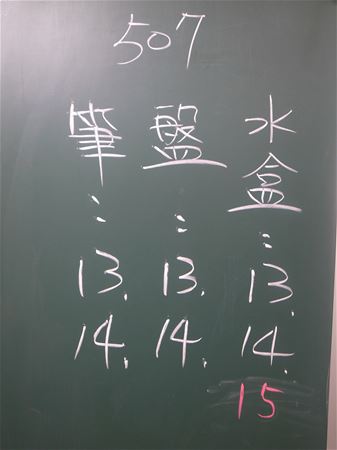 507
水盒：13. 14. 15
盤：13. 14.
筆：13. 14.